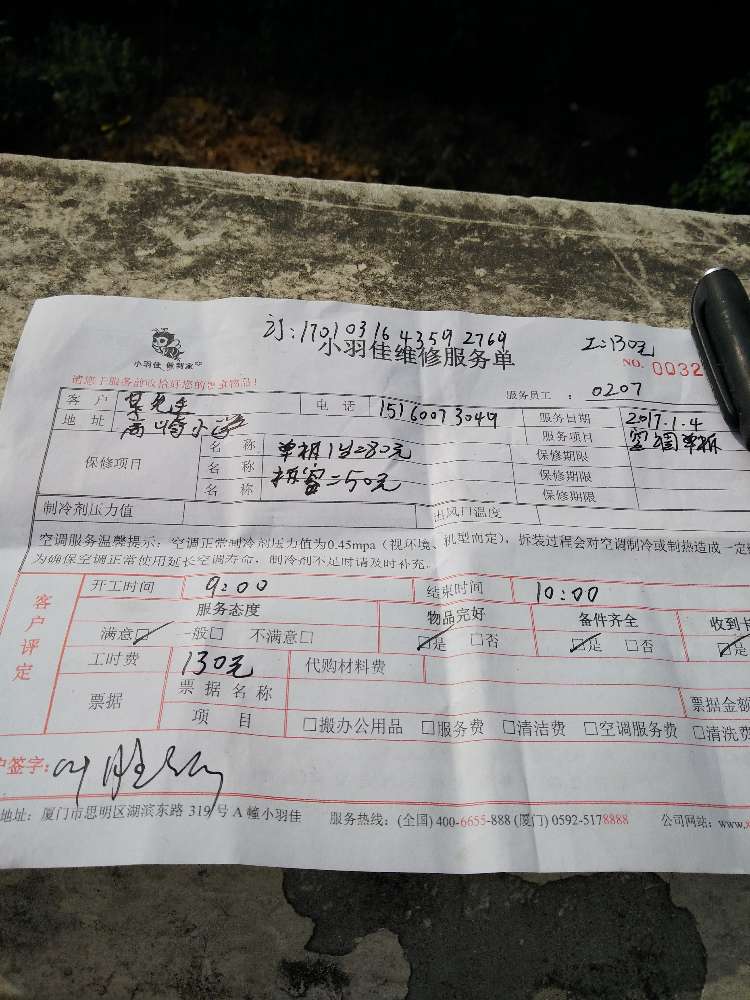 订:1701031643592769 工:130元
小羽佳 做到家
小羽佳维修服务单
NO. 0032
请您于服务前收拾好您的贵重物品!
服务员工 : 0207
客 户 电 话 15160073049 服务日期 2017.1.4
地 址 高崎小学 服务项目 空调单拆
保修项目 名 称 单拆1台=80元 保修期限
名 称 拆窗=50元 保修期限
名 称 保修期限
制冷剂压力值 出风口温度
空调服务温馨提示：空调正常制冷剂压力值为0.45mpa（视环境、机型而定），拆装过程会对空调制冷或制热造成一定
为确保空调正常使用延长空调寿命，制冷剂不足时请及时补充。
客户评定
开工时间 9:00 结束时间 10:00
服务态度 物品完好 备件齐全 收到卡
满意☑ 一般□ 不满意□ ☑是 □否 ☑是 □否 ☑是
工时费 130元 代购材料费
票据 票据名称 票据金额
项 目 □搬办公用品 □服务费 □清洁费 □空调服务费 □清洗费
户签字:
地址：厦门市思明区湖滨东路 319 号 A 幢小羽佳 服务热线：(全国) 400-6655-888 (厦门) 0592-5178888 公司网站：www.